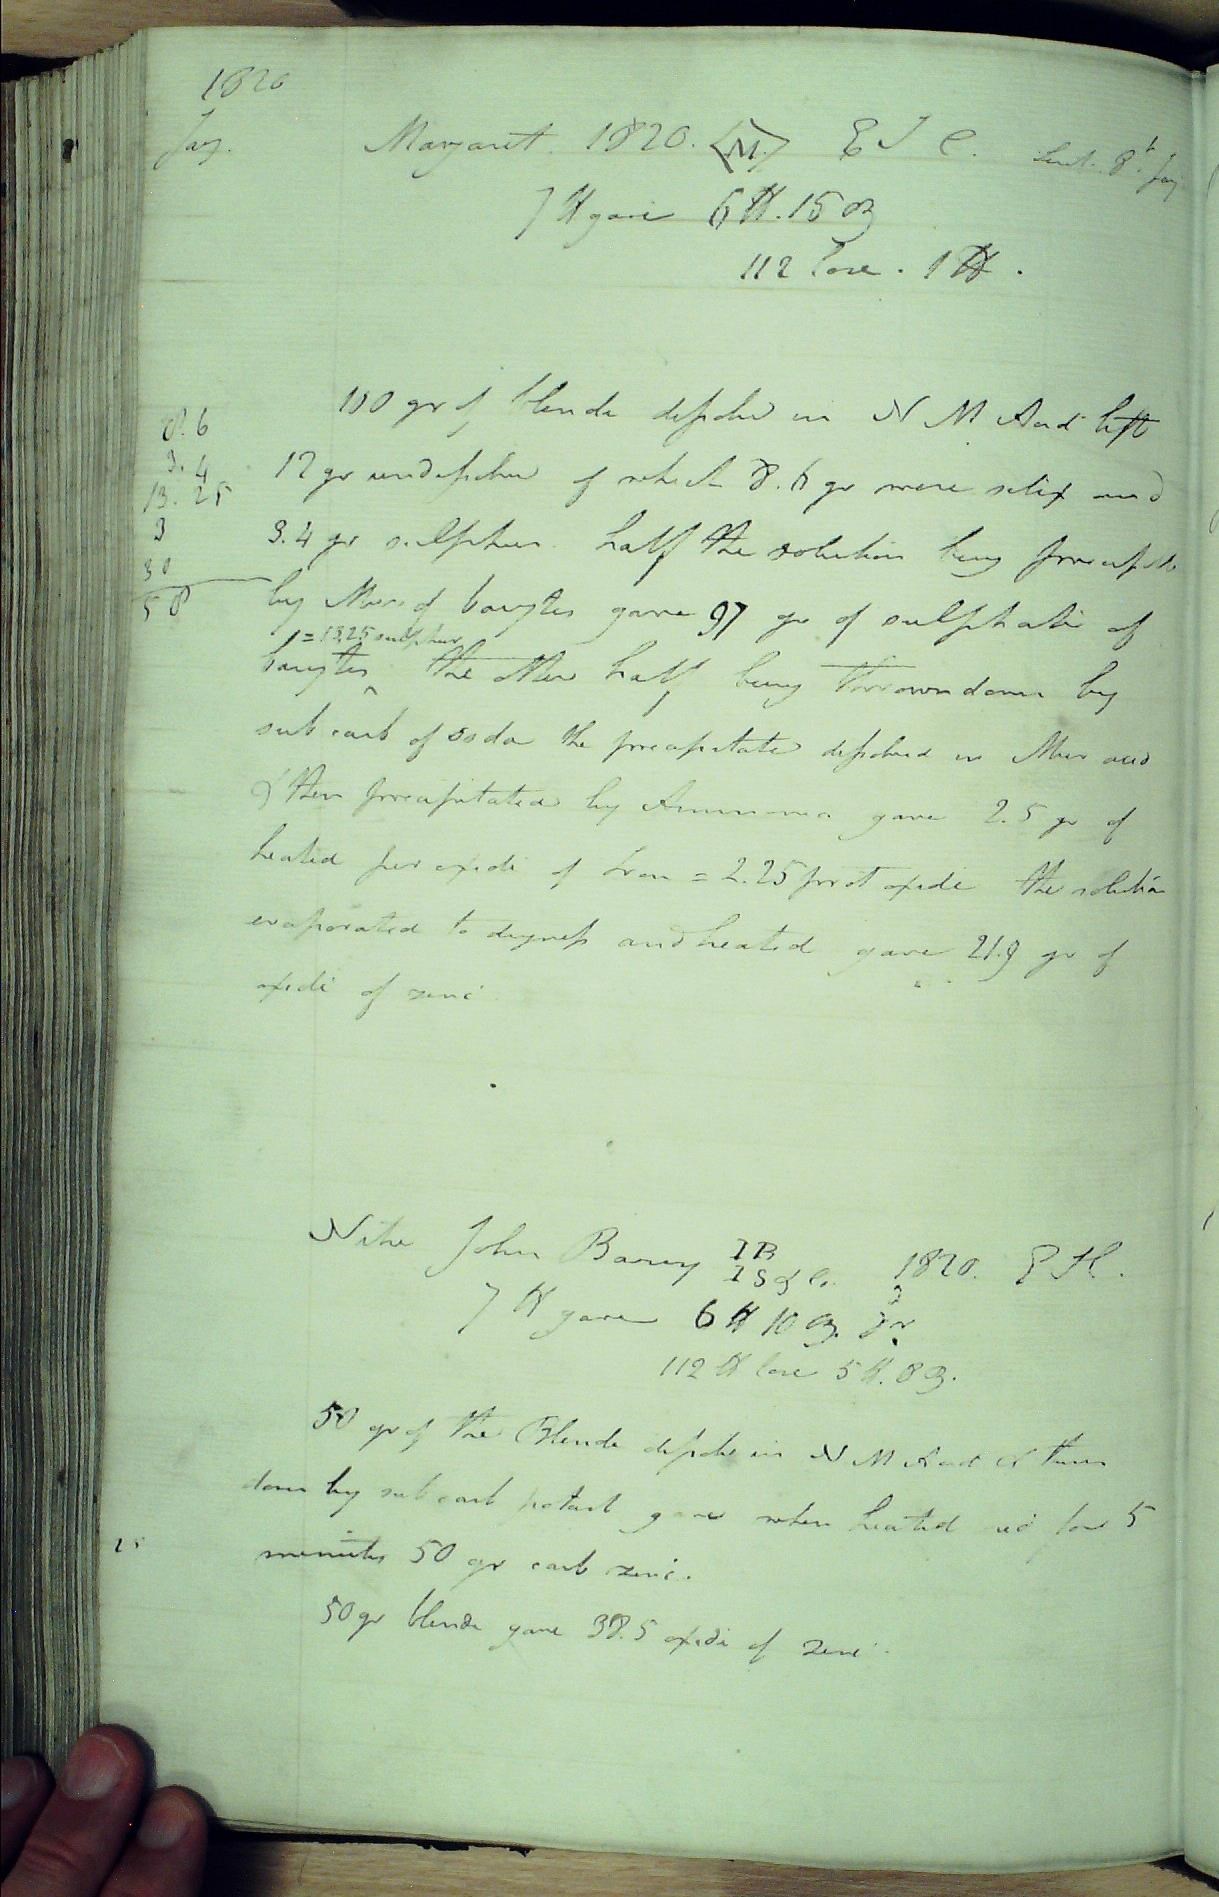 1820
Jay.
Margaret. 1820. <M> E I C. Sent. 8th Jay
7 ℔ gave 6 ℔. 15 oz
112 lose. 1 ℔.
100 gr of blende dissolvd in N M Acid left
8.6
3.4
13.25
3
30
58
12 gr undissolvd of which 8.6 gr were silex and
3.4 gr sulphur. half the solution being precipitd
by Mur of barytes gave 97 gr of sulphate of
= 13.25 sulphur
barytes ^ the other half being thrown down by
sub carb of soda the precipitate dissolved in Mur acid
& then precipitated by Ammonia gave 2.5 gr of
heated per oxide of Iron = 2.25 prot oxide the solution
evaporated to dryness and heated gave 21.9 gr of
oxide of zinc
Nitre John Barry IB
IS & Co. 1820. E H.
7 ℔ gave 6 ℔ 10 oz.
112 ℔ lose 5 ℔. 8 oz.
50 gr of the Blende dissolvd in N M Acid & thrown
down by sub carb potash gave when heated red for 5
25
minutes 50 gr carb zinc.
50 gr blende gave 38.5 oxide of zinc.